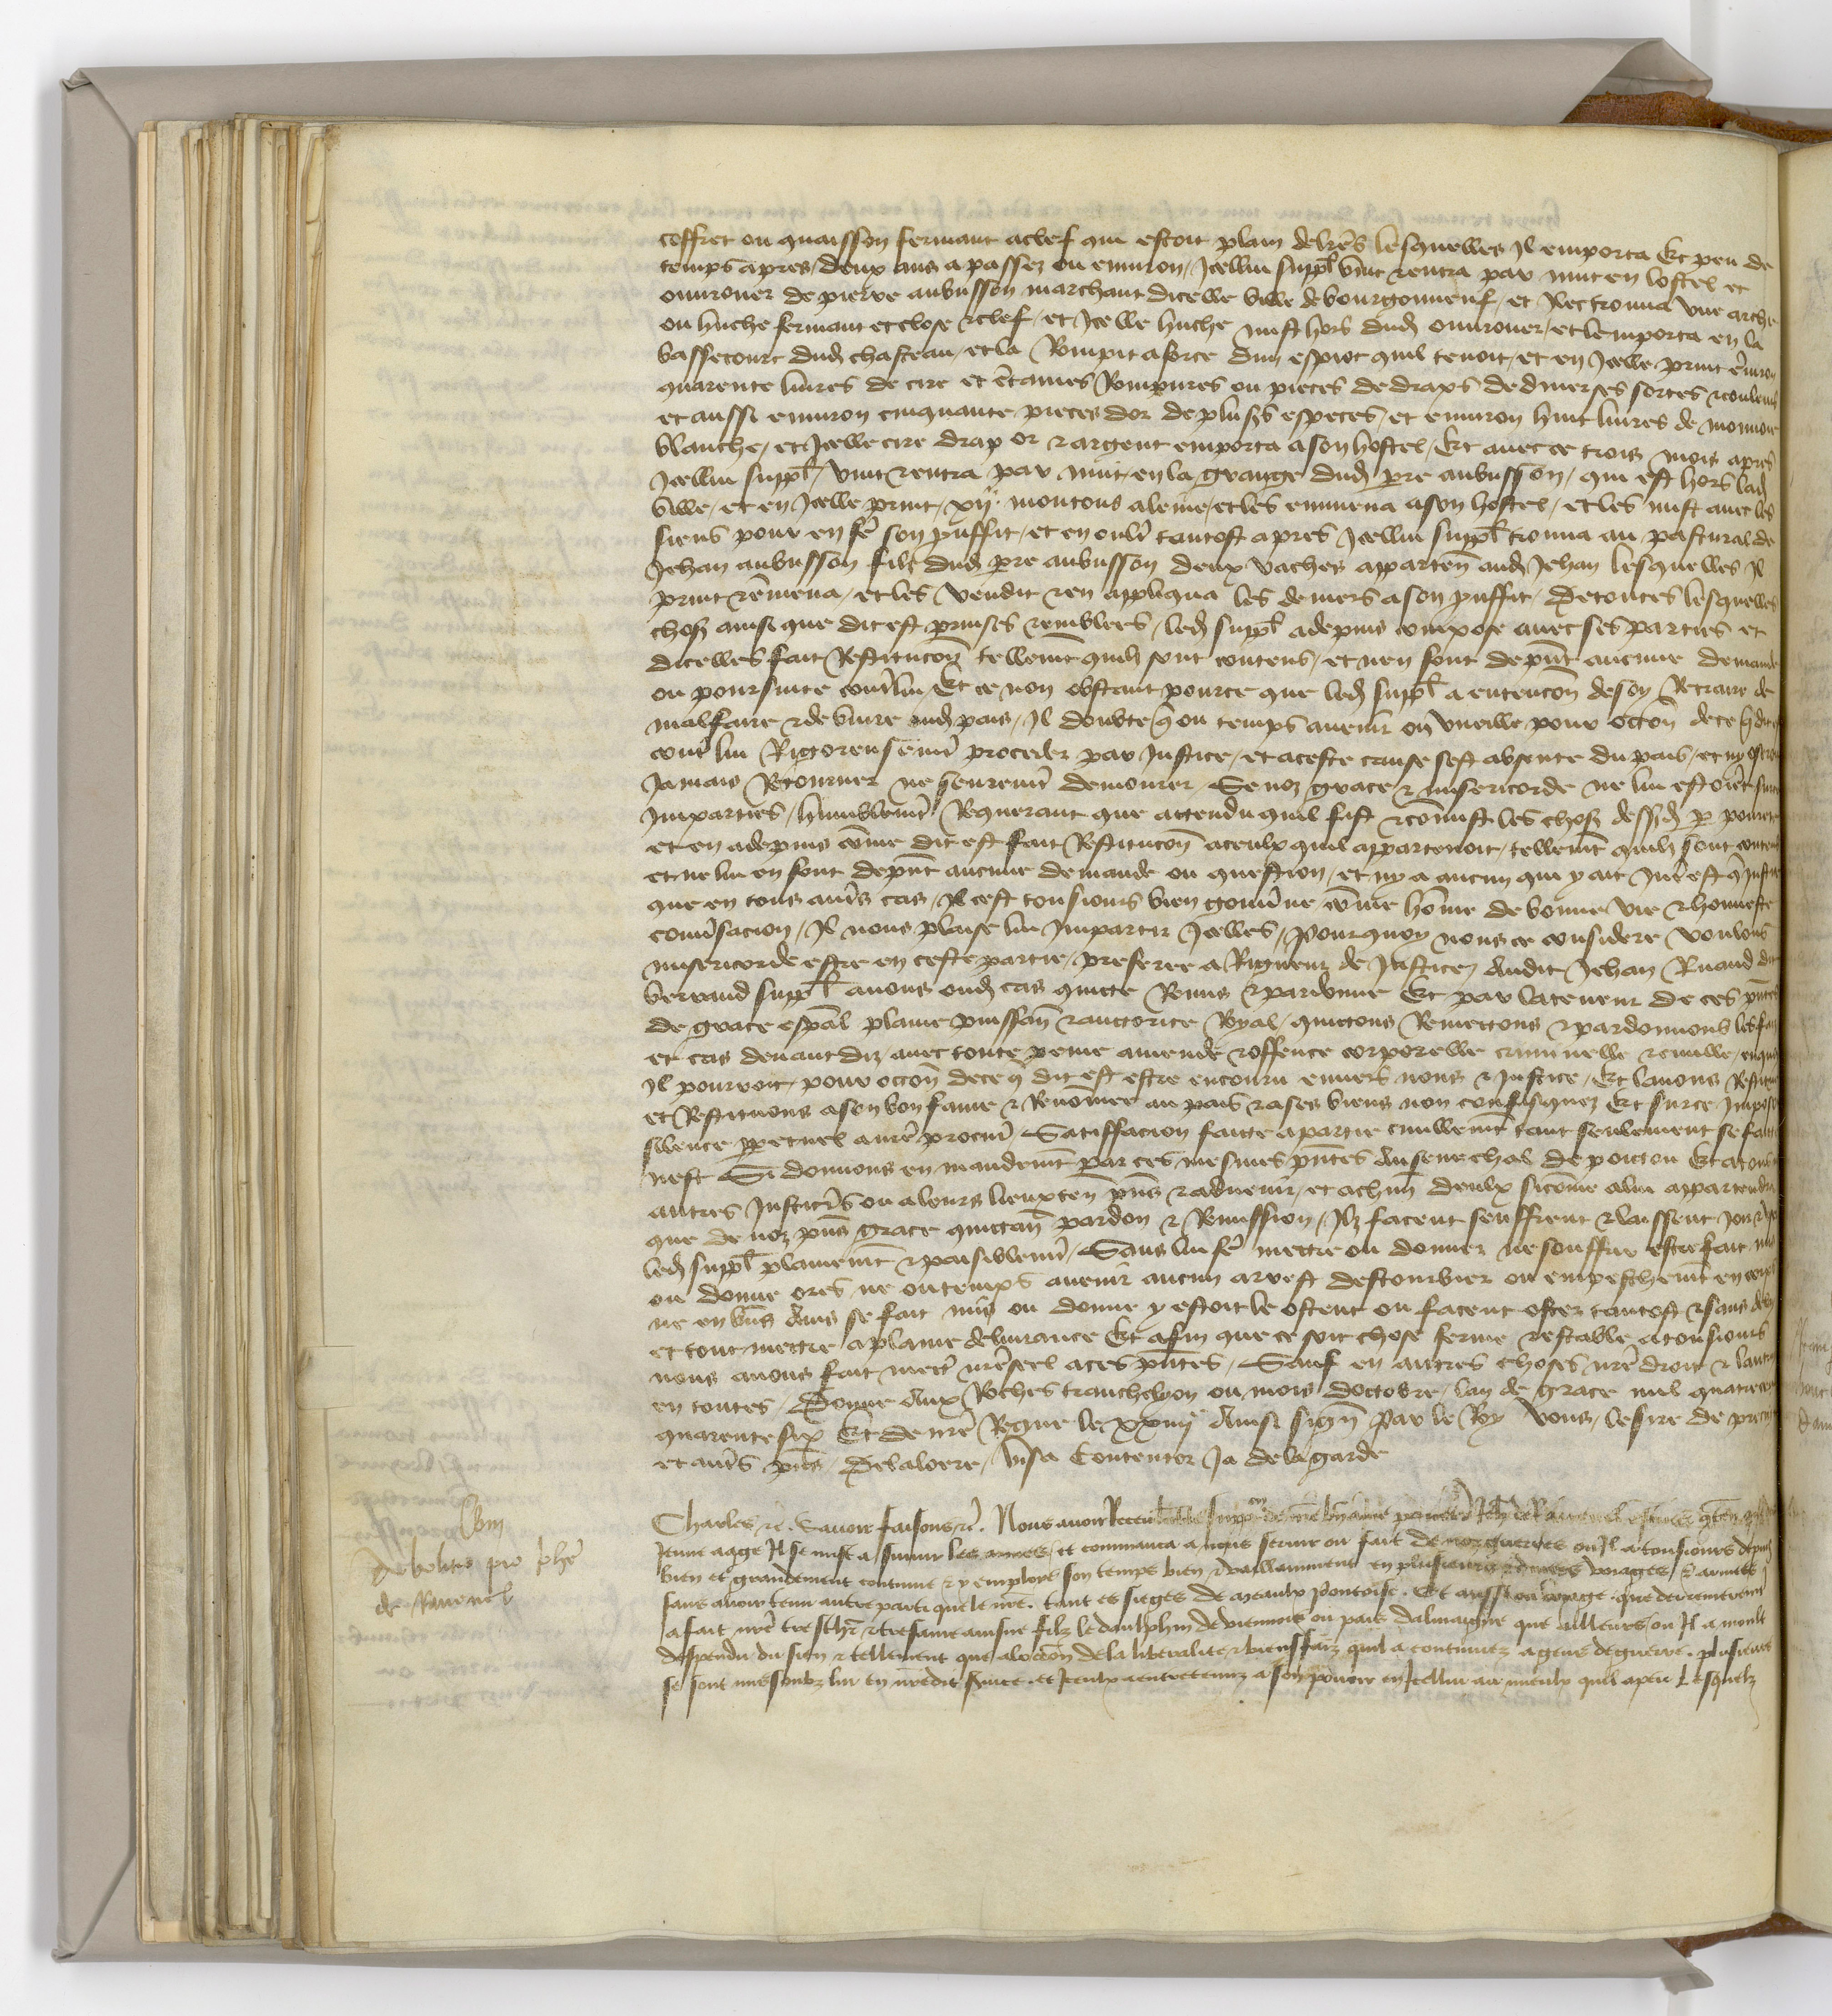 coffret ou quaisson fermant a clef qui estoit plain de lrēs lesquelles Il emporta Et peu de
temps apres, deux ans a passez ou environ, Icellui suppl vint & entra par nuit en lostel et
ouvrouer de pierre aubusson marchant dicelle ville de bourgoneuf, et Ilec trouva une arche
ou huche fermant et close & clef, et Icelle huche mist hors dud ouvrouer, et lemporta en la
bassecourt dud chasteau, et la Rompit a force dun espiot quil tenoit, et en Icelle print environ
quarente livres de cire et certaines Rompures ou pieces de draps de diverses sortes & couleurs
et aussi environ cinquante pieces dor de plusrs especes, et environ huit livres de monnoie
blanche, et Icelle cire drap or & argent emporta a son hostel, Et avec ce trois mois apres
Icellui suppl, vint & entra par nuit en la grange dud pre aubusson, qui est hors lad
ville, et en Icelle print, xij moutons a leine, et les emmena a son hostel, et les mist avec les
siens pour en fe son prouffit, et en oultr tantost apres Icellui suppl trouva au pastural de
Jehan aubusson filz dud pre aubusson deux vaches apparten aud Jehan lesquelles Il
print & emmena, et les vendit & en appliqua les deniers a son prouffit, De toutes lesquelles
chos ainsi que dit est prinses & emblees, led suppl a depuis compose avec ses parties et
dicelles fait Restitucon tellemt quilz sont contens, et nen font de pnt aucune demande
ou poursuite contr lui, Et ce non obstant pource que led suppl a entencon de soy Retraire de
malfaire & de vivre oud pais, Il doubte q ou temps avenir on vueille pour occon de ce q dit est
contr lui Rigoreusemt proceder par Justice, et a ceste cause sest absente du pais, et ny oseroit
Jamais Retourner ne seuremt demourer, Se noz grace & misericorde ne lui estoient sur ce
Imparties, humblemt Requerant que attendu quil fist & commist les chos dessusd p povrete
et en a depuis come dit est fait Restitucon a ceulx quil appartenoit, tellemt quilz sont contens
et ne lui en font de pnt aucune demande ou question, et ny a aucun qui y ait Interest q Justice
que en tous autrs cas, Il sest tousiours bien gouverne, come home de bonne vie & honneste
conversacion, Il nous plaise lui Impartir Icelles, Pourquoy nous ce considere voulons
misericorde estre en ceste partie, preferee a Rigueur de Justice, Audit Jehan Ruaud dit
berraud suppl avons oud cas quicte Remis & pardonne Et par la teneur de ces pntes
de grace espal plaine puissan & auctorite Royal, quictons Remettons & pardonnons les faiz
et cas devant diz, avec toute peine amende & offence corporelle criminelle & civille, en quoy
Il pourroit pour occon de ce q dit est estre encouru envers nous & Justice, Et lavons Restitue
et Restituons a son bon fame & Renomee au pais & a ses biens non confisquez Et sur ce Imposons
silence ppetuel a nre procur, Satiffacion faicte a partie civillemt tant seulement se faicte
nest Si donnons en mandemt par ces mesmes pntes Au seneschal de poictou Et a touz
autres Justiciers ou a leurs lieuxten pns & advenir, et a chun deulx sicome a lui appartendra
que de noz pns grace quictan pardon & Remission, Ilz facent seuffrent & laissent Joir & user
led suppl plainemt & paisiblemt, Sans lui fe mettre ou donner ne souffrir estre fait mis
ou donne ores, ne ou temps avenir aucun arrest destourbier ou empeschemt en corps
ne en biens Ains se fait mis ou donne y estoit le ostent ou facent oster tantost & sans delay
et tout mettre a plaine delivrance Et afin que ce soit chose ferme & estable a tousiours
nous avons fait mectr nre seel a ces pntes, Sauf en autres choses nre droit & lautruy
en toutes, Donne Aux Roches tranchelyon ou mois doctobre, lan de grace mil quatrecens
quarente six Et de nre Regne le xxiiije Ainsi signe Par le Roy Vous, le sire de precigny
et autrs pns, Delaloere, Visa Contentor Ja de la garde
Charles &c. Savoir faisons &c. Nous avoir Receu
Jeune aage Il se mist a suivir les armes, et commanca a nous servir ou fait de noz guerres ou Il a tousiours depuis
bien et grandement continue & y emploie son temps bien & vaillanment en plusieurs & divers voiages & armees
sans avoir tenu autre parti que le nre. tant es sieges de meaulx pontoise. Et aussi ou voiage que derrenierement
a fait nre treschr & tresame aisne filz le daulphin de viennois ou pais dalmaigne que ailleurs ou Il a moult
despendu du sien & tellement que a loccon de la liberalite & biensfaiz quil a continuez a gens de guerre. plusieurs
se sont mis soubz lui en nredit service. et Iceulx entretenuz a son povoir en Icellui au mieulx quil a peu Lesquelz
De bellius pro phe
de Ravenel